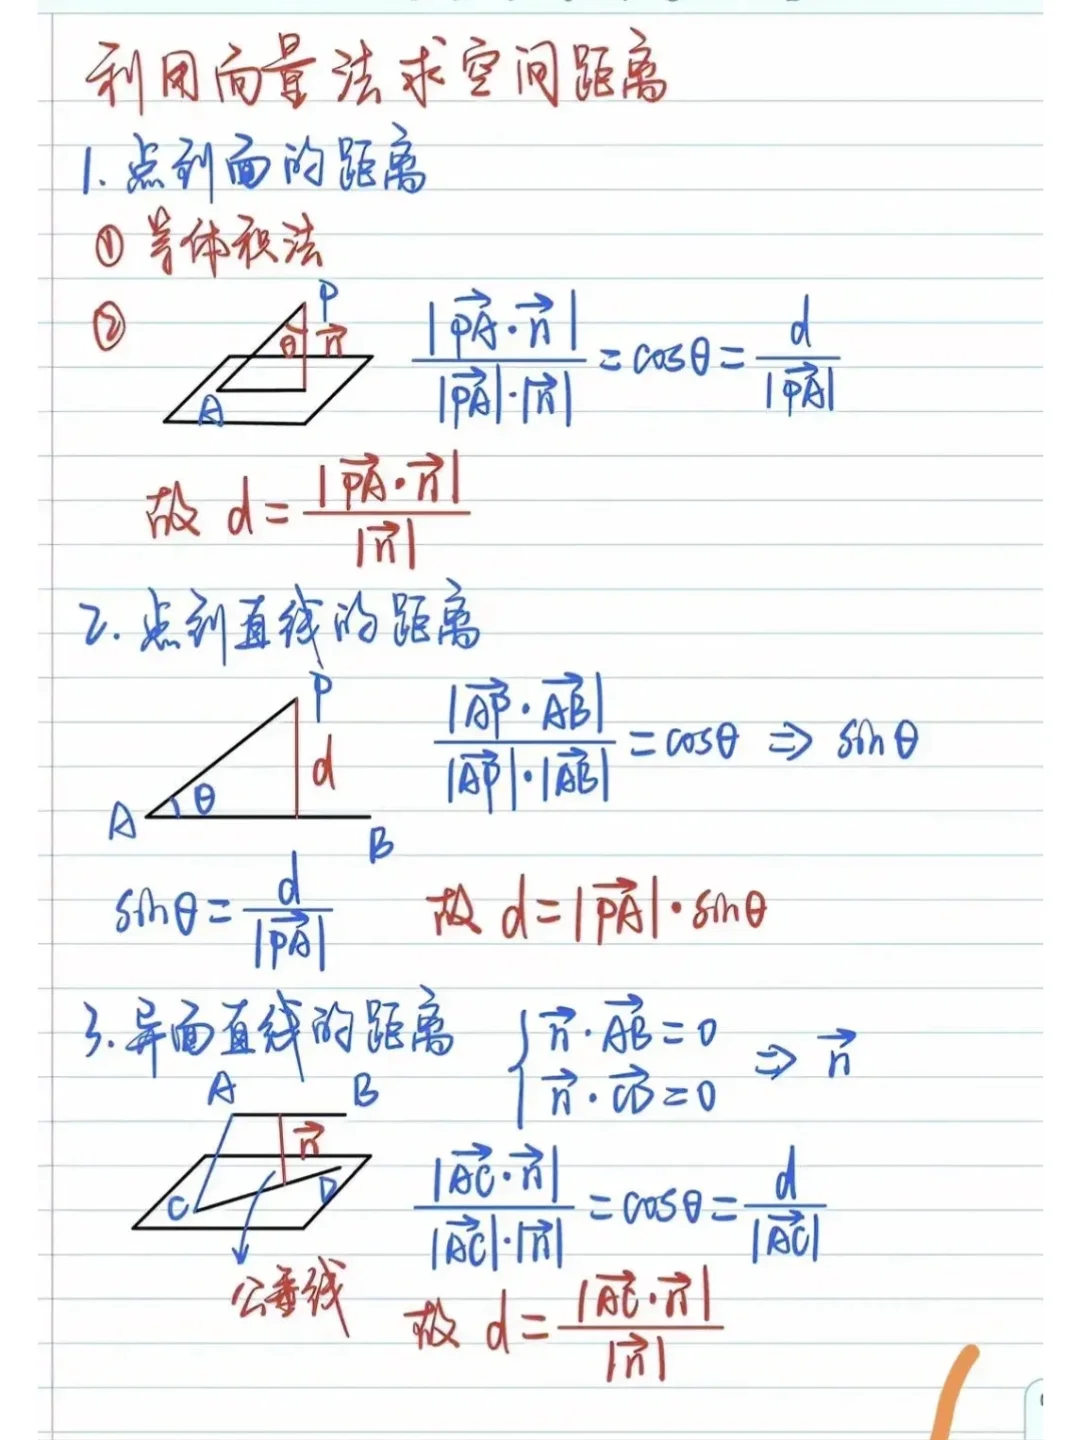 利用向量法求空间距离
1.点到面的距离
①等体积法
②
P
θ
n⃗
A
|PA⃗·n⃗| / |PA⃗|·|n⃗| = cosθ = d / |PA⃗|
故 d = |PA⃗·n⃗| / |n⃗|
2.点到直线的距离
P
d
θ
A
B
|AP⃗·AB⃗| / |AP⃗|·|AB⃗| = cosθ ⇒ sinθ
sinθ = d / |PA⃗|
故 d = |PA⃗|·sinθ
3.异面直线的距离
{ n⃗·AB⃗=0
n⃗·CD⃗=0
⇒ n⃗
A
B
n⃗
C
D
公垂线
|AC⃗·n⃗| / |AC⃗|·|n⃗| = cosθ = d / |AC⃗|
故 d = |AC⃗·n⃗| / |n⃗|